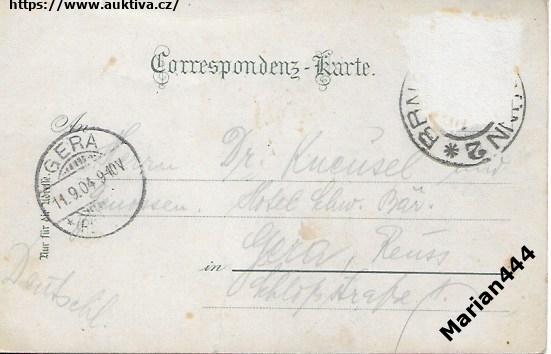 https://www.auktiva.cz/
Correspondenz-Karte.
An
Herrn Dr. Kneusel und
Genossen. Hotel Schw. Bär.
in Gera, Reuss
Schloßstraße
Deutschl.
Nur für die Adresse.
GERA
11.9.04.9-10V
BRÜNN 2 *
Marian444